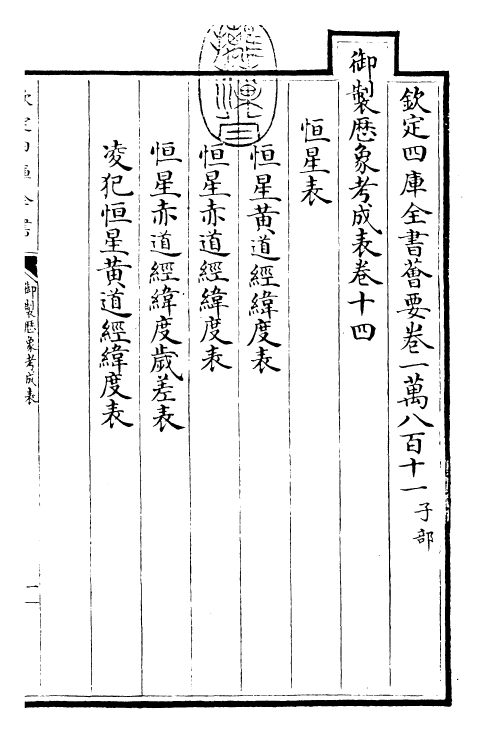 欽定四庫全書薈要卷一萬八百十一子部
御製歷象考成表卷十四
恒星表
恒星黃道經緯度表
恒星赤道經緯度表
恒星赤道經緯度歲差表
凌犯恒星黃道經緯度表
御製歷象考成表
一